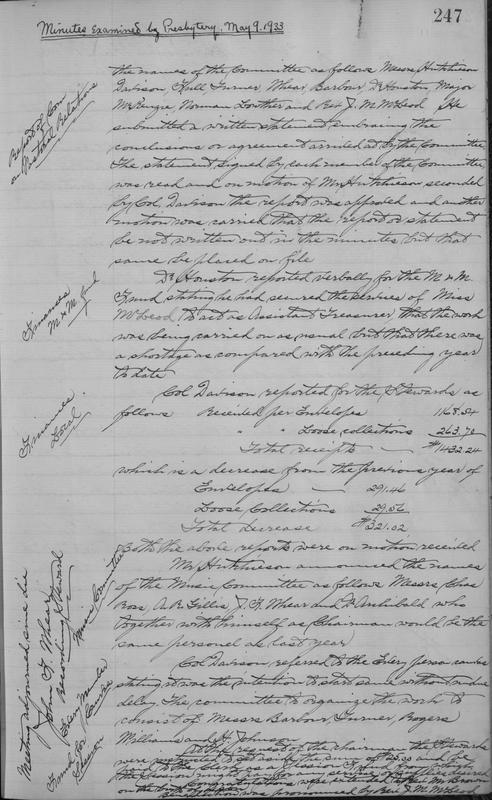 247
Minutes Examined by Presbytery, May 9. 1933
the names of the Committee as follows Messrs Hutchison
Davison, Krull Turner, Whear Barbour, Dr Houston, Major
McKenzie Norman Lowther and Rev J. M. McLeod He
submitted a written statement embracing the
conclusions or agreement arrived at by the Committee
The statement signed by each member of the Committee
was read and on motion of Mr Hutchison seconded
by Col Davison the report was approved and another
motion was carried that the report or statement
be not written out in the minutes but that
same be placed on file
Report of Com
on Pastoral Relations
Dr Houston reported verbally for the M & M
Fund stating he had secured the services of Miss
McLeod to act as Assistant Treasurer, that the work
was being carried on as usual but that there was
a shortage as compared with the preceding year
to date
Finances
M & M fund
Col Davison reported for the Stewards as
follows Received per Envelopes 1168.54
" " Loose collections 263.70
Total receipts — $1432.24
which is a decrease from the previous year of
Envelopes — 291.46
Loose Collections 29.56
Total decrease $321.02
Finances
Local
Both the above reports were on motion received
Mr Hutchison announced the names
of the Music Committee as follows Messrs Chas
Ross, A. R. Gillis, J. F. Whear and D. Archibald who
together with himself as Chairman would be the
same personel as last year
Music Committee
Col Davison referred to the Every person canvas
stating it was the intention to start same without undue
delay. The committee to organize the work to
consist of Messrs Barbour, Turner, Rogers
Williams and H. Johnson
Every Member
Canvas
At the request of the chairman the Stewards
were requested to set aside the sum of
the Session might pay for any services or supplies desired
Benediction was pronounced by Rev J. M. McLeod
Fund for
Session
Meeting adjourned sine die
John F. Whear
Recording Steward